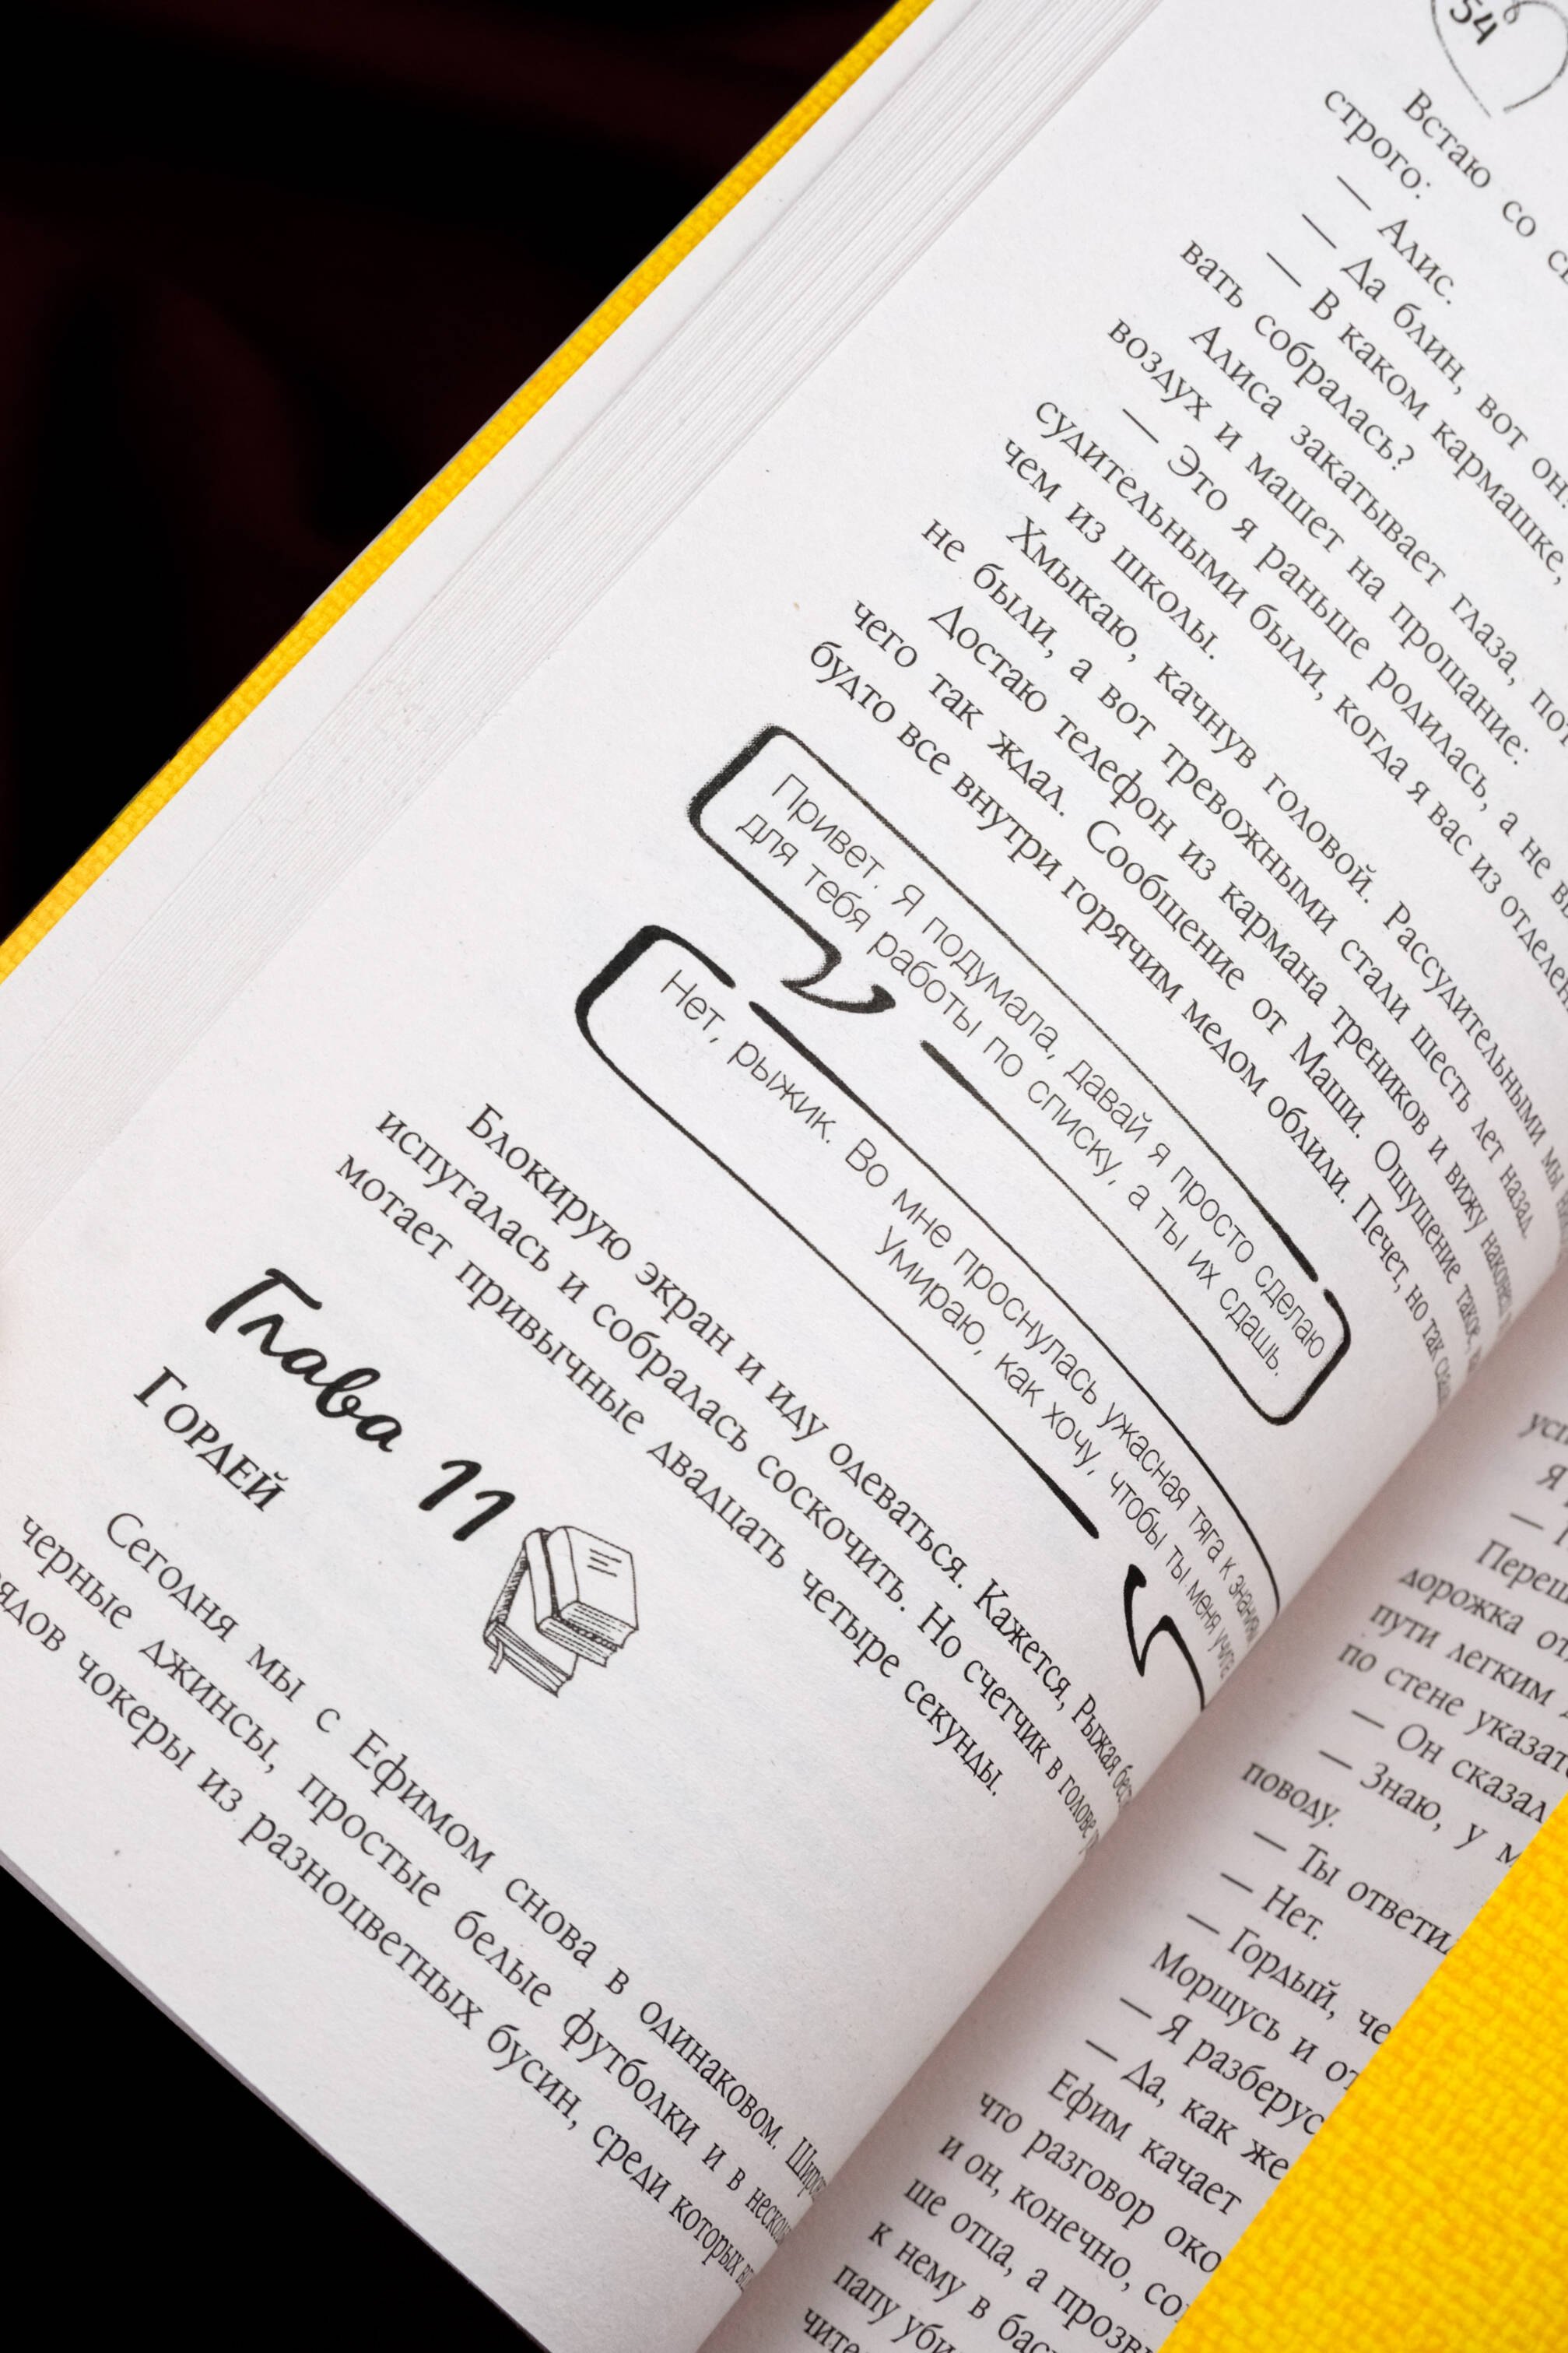 54
Встаю со
строго:
— Алис.
— Да блин, вот он.
— В каком кармашке,
вать собралась?
Алиса закатывает глаза,
воздух и машет на прощание:
— Это я раньше родилась, а не
судительными были, когда я вас из
чем из школы.
Хмыкаю, качнув головой. Рассудительными мы
не были, а вот тревожными стали шесть лет назад.
Достаю телефон из кармана треников и вижу наконец
чего так ждал. Сообщение от Маши. Ощущение такое,
будто все внутри горячим медом облили. Печет, но так
Привет. Я подумала, давай я просто сделаю
для тебя работы по списку, а ты их сдашь.
Нет, рыжик. Во мне проснулась ужасная тяга к
Умираю, как хочу, чтобы ты меня
Блокирую экран и иду одеваться. Кажется, Рыжая
испугалась и собралась соскочить. Но счетчик в голове
мотает привычные двадцать четыре секунды.
Глава 11
Гордей
Сегодня мы с Ефимом снова в одинаковом.
черные джинсы, простые белые футболки и в
чокеры из разноцветных бусин, среди которых
Я
—
дорожка
пути легким
по стене
— Он сказал
— Знаю, у
поводу.
— Ты
— Нет.
— Гордый,
Морщусь и
— Я
— Да, как же
Ефим качает
что разговор
и он, конечно,
ше отца, а
к нему в
папу